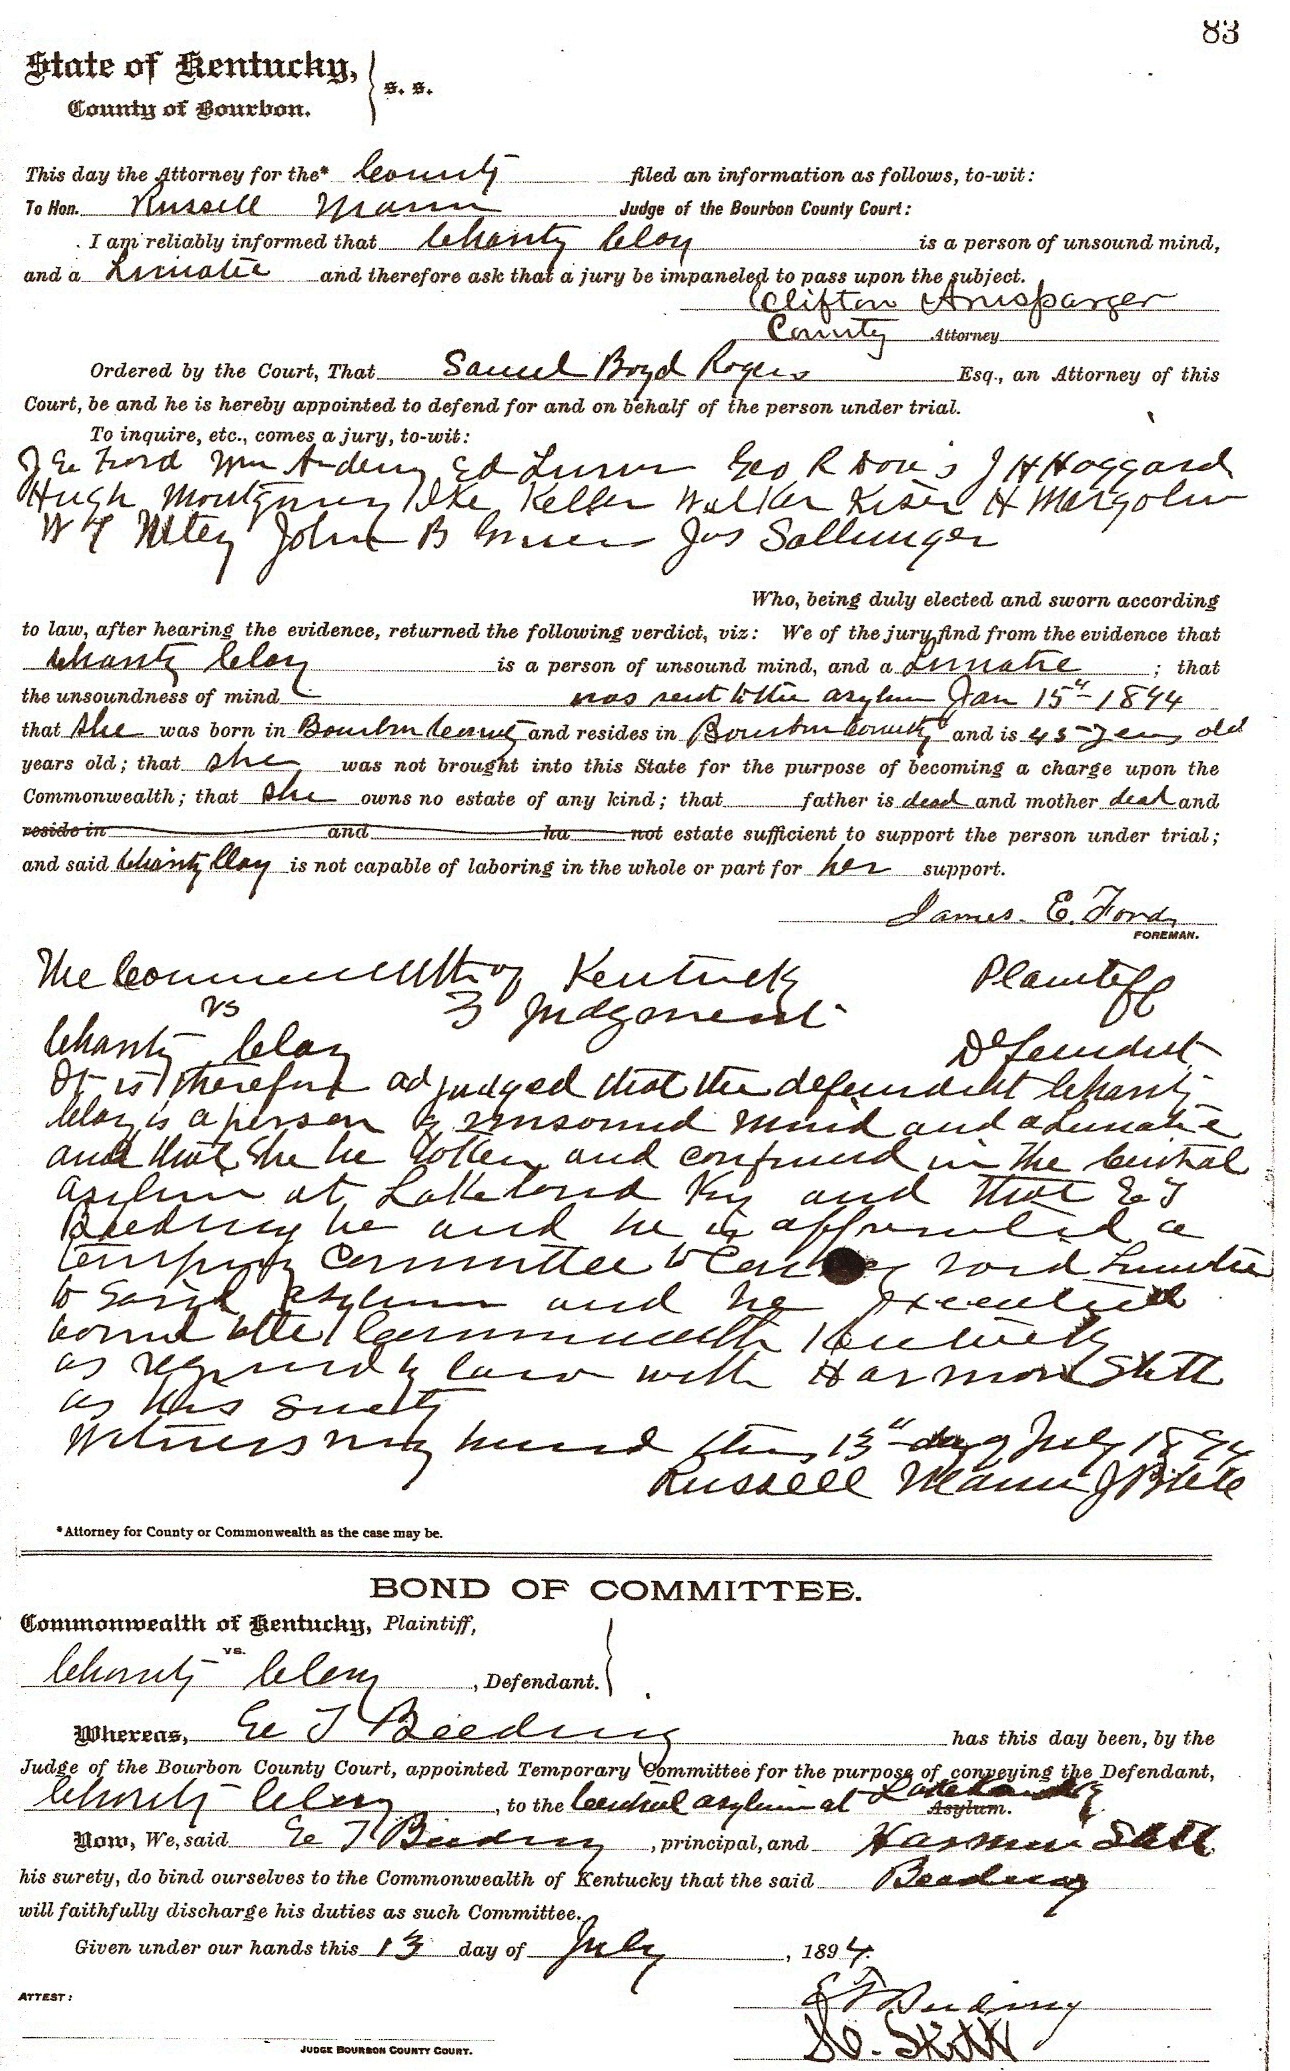 83
State of Kentucky,
County of Bourbon. } s. s.
This day the Attorney for the* County filed an information as follows, to-wit:
To Hon. Russell Mann Judge of the Bourbon County Court:
I am reliably informed that Charity Clay is a person of unsound mind,
and a Lunatic and therefore ask that a jury be impaneled to pass upon the subject.
Clifton Arnsparger
County Attorney
Ordered by the Court, That Samuel Boyd Rogers Esq., an Attorney of this
Court, be and he is hereby appointed to defend for and on behalf of the person under trial.
To inquire, etc., comes a jury, to-wit:
J E Ford Wm Ed Turner Geo R Davis J H Haggard
Hugh Montgomery Ike Keller Walker Kiser H Margolin
W T John B Jas
Who, being duly elected and sworn according
to law, after hearing the evidence, returned the following verdict, viz: We of the jury find from the evidence that
Charity Clay is a person of unsound mind, and a Lunatic ; that
the unsoundness of mind was sent to the asylum Jan 15th 1894
that she was born in Bourbon County and resides in Bourbon County and is 45 years old
years old; that she was not brought into this State for the purpose of becoming a charge upon the
Commonwealth; that she owns no estate of any kind; that father is dead and mother dead and
reside in and ha not estate sufficient to support the person under trial;
and said Charity Clay is not capable of laboring in the whole or part for her support.
James. E. Ford
FOREMAN.
The Commonwealth of Kentucky Plaintiff
vs } Judgment
Charity Clay Defendant
It is therefore adjudged that the defendant Charity
Clay is a person of unsound mind and a Lunatic
and that she be taken and confined in the Central
asylum at Lakeland Ky and that E T
Beeding be and he is appointed a
committee to said Lunatic
to said asylum and he executed
bond to the Commonwealth Kentucky
as required by law with Harmon Stitt
as his surety
Witness my hand this 13th day of July 1894
Russell Mann J B C C
*Attorney for County or Commonwealth as the case may be.
BOND OF COMMITTEE.
Commonwealth of Kentucky, Plaintiff,
vs.
Charity Clay , Defendant. }
Whereas, E T Beeding has this day been, by the
Judge of the Bourbon County Court, appointed Temporary Committee for the purpose of conveying the Defendant,
Charity Clay , to the Central asylum at Lakeland Ky Asylum.
Now, We, said E T Beeding , principal, and Harmon Stitt
his surety, do bind ourselves to the Commonwealth of Kentucky that the said Beeding
will faithfully discharge his duties as such Committee.
Given under our hands this 13 day of July , 1894.
E T Beeding
ATTEST:
H. Stitt
JUDGE BOURBON COUNTY COURT.